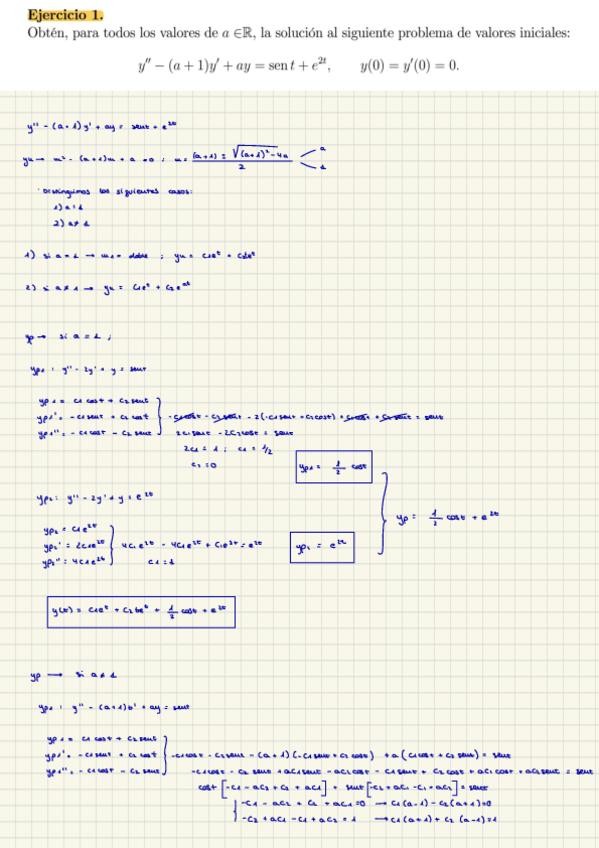 Ejercicio 1.
Obtén, para todos los valores de a ∈ℝ, la solución al siguiente problema de valores iniciales:
y″ − (a + 1)y′ + ay = sen t + e^{2t},    y(0) = y′(0) = 0.
y'' - (a+1)y' + ay = sent + e^{2t}
yh → m² - (a+1)m + a = 0 ; m = \frac{(a+1) ± \sqrt{(a+1)² - 4a}}{2} < a
1
· Distinguimos los siguientes casos:
1) a = 1
2) a ≠ 1
1) si a = 1 → m = 1 doble ; yh = c1e^t + c2te^t
2) si a ≠ 1 → yh = c1e^t + c2e^{at}
yp → si a = 1 ;
yp1 : y'' - 2y' + y = sent
yp1 = c1 cost + c2 sent
yp1' = -c1 sent + c2 cost } -c1cost - c2sent - 2(-c1sent + c2cost) + c1cost + c2sent = sent
yp1'' = -c1cost - c2 sent 2c1sent - 2c2cost = sent
2c1 = 1 ; c1 = 1/2
c2 = 0
yp1 = \frac{1}{2} cost
yp2 : y'' - 2y' + y = e^{2t}
yp = \frac{1}{2} cost + e^{2t}
yp2 = c1e^{2t}
yp2' = 2c1e^{2t} } 4c1e^{2t} - 4c1e^{2t} + c1e^{2t} = e^{2t}
yp2'' = 4c1e^{2t} c1 = 1
yp2 = e^{2t}
y(t) = c1e^t + c2te^t + \frac{1}{2} cost + e^{2t}
yp → si a ≠ 1
yp1 : y'' - (a+1)y' + ay = sent
yp1 = c1 cost + c2 sent
yp1' = -c1 sent + c2 cost } -c1cost - c2sent - (a+1)(-c1sent + c2cost) + a(c1cost + c2 sent) = sent
yp1'' = -c1cost - c2 sent -c1cost - c2 sent + ac1sent - ac2cost - c1sent + c2cost + ac1cost + ac2sent = sent
cost [-c1 - ac2 + c2 + ac1] + sent [-c2 + ac1 - c1 + ac2] = sent
{ -c1 - ac2 + c2 + ac1 = 0 → c1(a-1) - c2(a+1) = 0
-c2 + ac1 - c1 + ac2 = 1 → c1(a+1) + c2(a-1) = 1